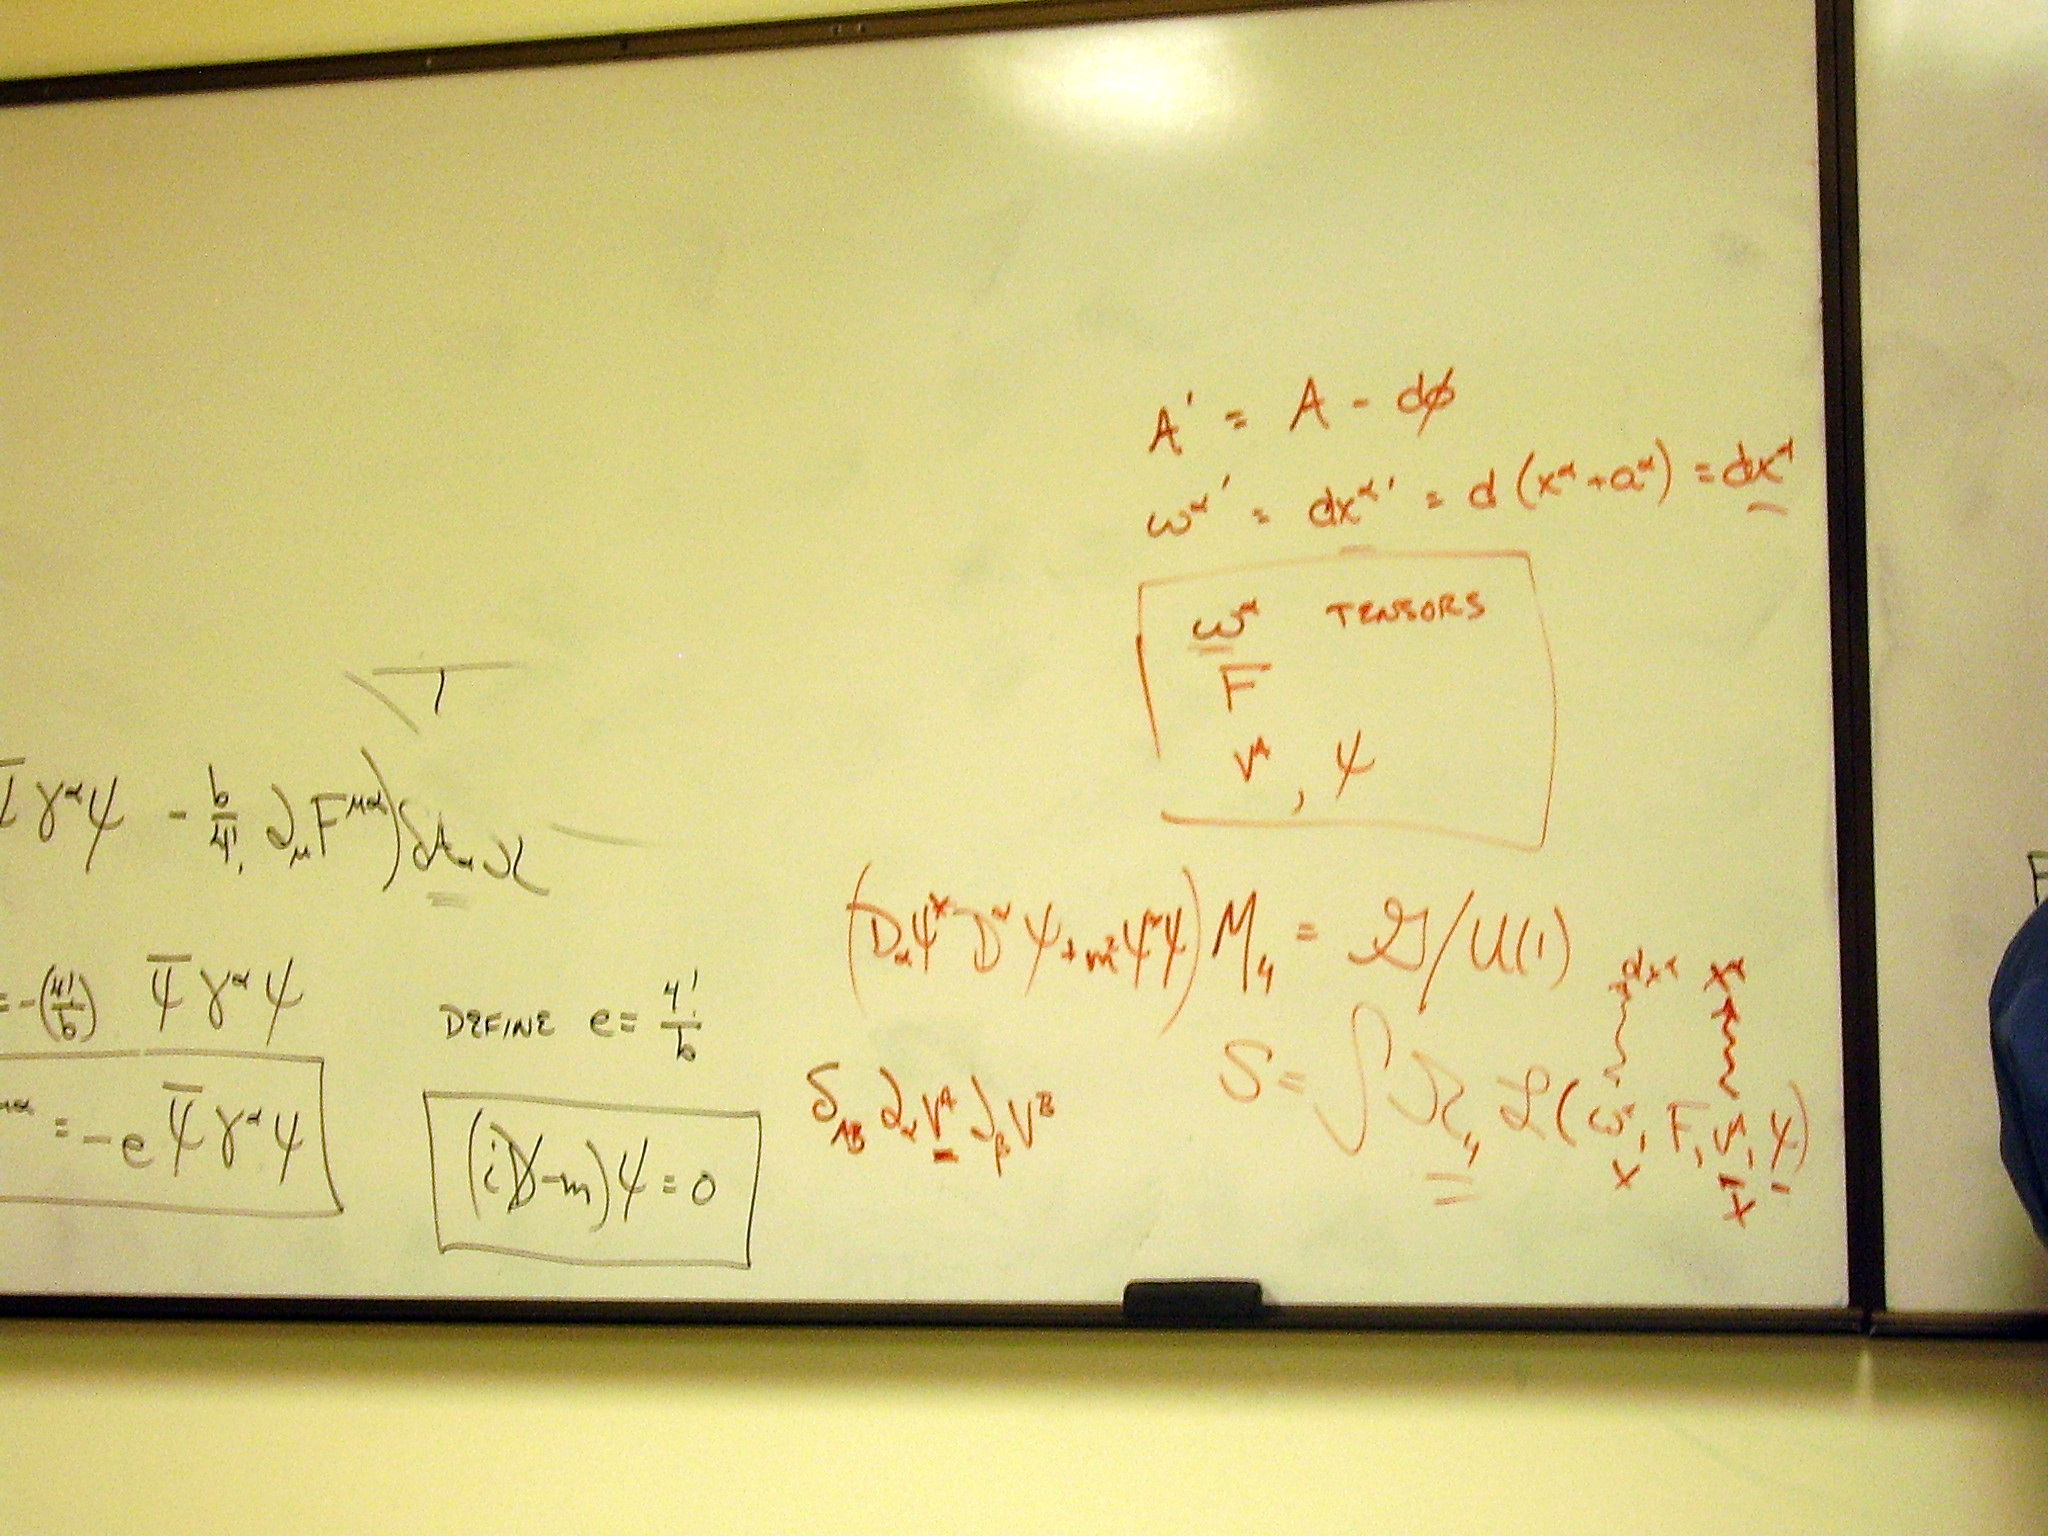 A' = A - dφ
ω^α' = dx^α' = d(x^α + a^α) = dx^α
ω^α TENSORS
F
v^A, ψ
γ^α ψ - b/4! ∂_μ F^μα) δA_α
(D_α ψ* D^α ψ + m² ψ*ψ) M_4 = 𝒢/U(1)
= -(4!/b) ψ̄ γ^α ψ
DEFINE e = 4!/b
dx^α x^α
δ_AB ∂_α v^A ∂_β v^B
S = ∫ Ω_4 ℒ(ω^α, F, v^A, ψ)
x x
^μα = -e ψ̄ γ^α ψ
(iD̸ - m)ψ = 0